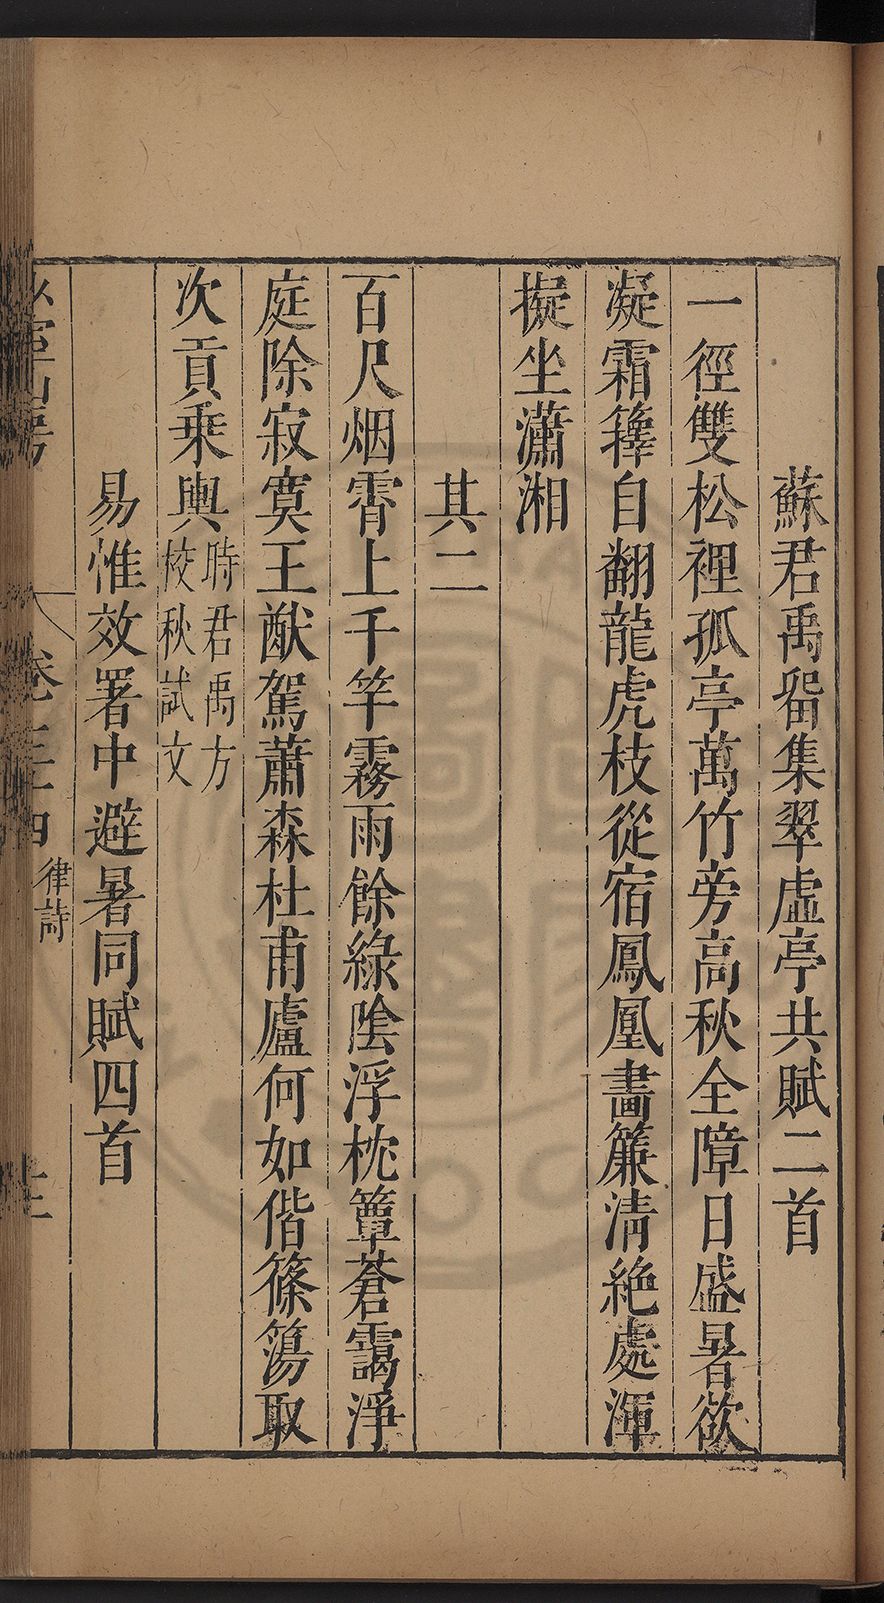 蘇君禹留集翠虛亭共賦二首
一徑雙松裡孤亭萬竹旁高秋全障日盛暑欲
凝霜籜自翻龍虎枝從宿鳳凰畵簾清絶處渾
擬坐瀟湘
其二
百尺烟霄上千竿霧雨餘綠陰浮枕簟蒼靄淨
庭除寂寞王猷駕蕭森杜甫廬何如偕篠簜取
次貢乗輿時君禹方
校秋試文
易惟效署中避暑同賦四首
卷三十四
律詩